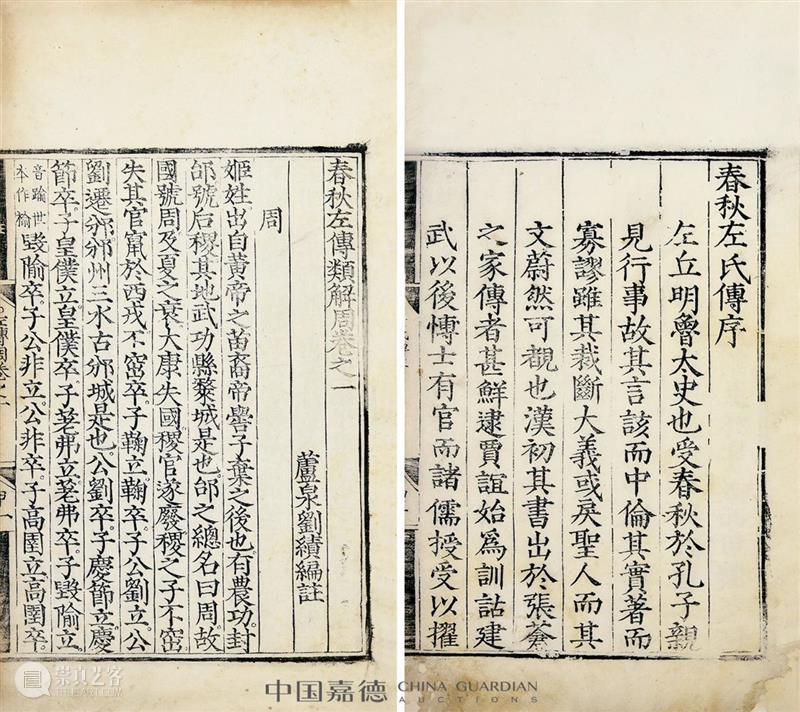 春秋左氏傳序
左丘明魯太史也受春秋於孔子親
見行事故其言該而中倫其實著而
寡謬雖其裁斷大義或戾聖人而其
文蔚然可觀也漢初其書出於張蒼
之家傳者甚鮮逮賈誼始為訓詁建
武以後愽士有官而諸儒授受以擢
春秋左傳類解周卷之一
蘆泉劉績編註
周
姬姓出自黃帝之苗裔帝嚳子棄之後也有農功封
邰號后稷其地武功縣斄城是也邰之總名曰周故
國號周及夏之衰大康失國稷官遂廢稷之子不窋
失其官竄於西戎不窋卒子鞠立鞠卒子公劉立公
劉遷邠邠州三水古邠城是也公劉卒子慶節立慶
節卒子皇僕立皇僕卒子差弗立差弗卒子毀隃立
音踰世
本作榆
毀隃卒子公非立公非卒子高圉立高圉卒
崇真艺客
中国嘉德
CHINA GUARDIAN
AUCTIONS